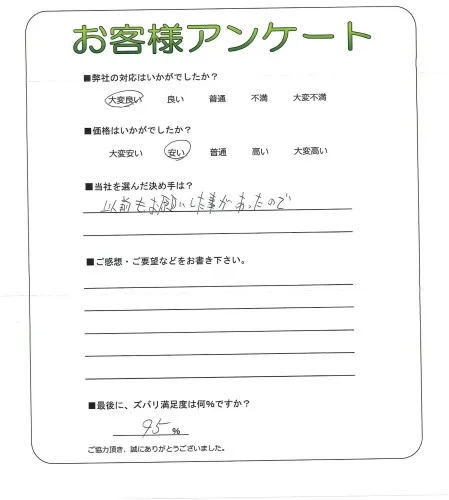 お客様アンケート
■弊社の対応はいかがでしたか？
大変良い 良い 普通 不満 大変不満
■価格はいかがでしたか？
大変安い 安い 普通 高い 大変高い
■当社を選んだ決め手は？
以前もお願いした事があったので
■ご感想・ご要望などをお書き下さい。
■最後に、ズバリ満足度は何％ですか？
95 ％
ご協力頂き、誠にありがとうございました。